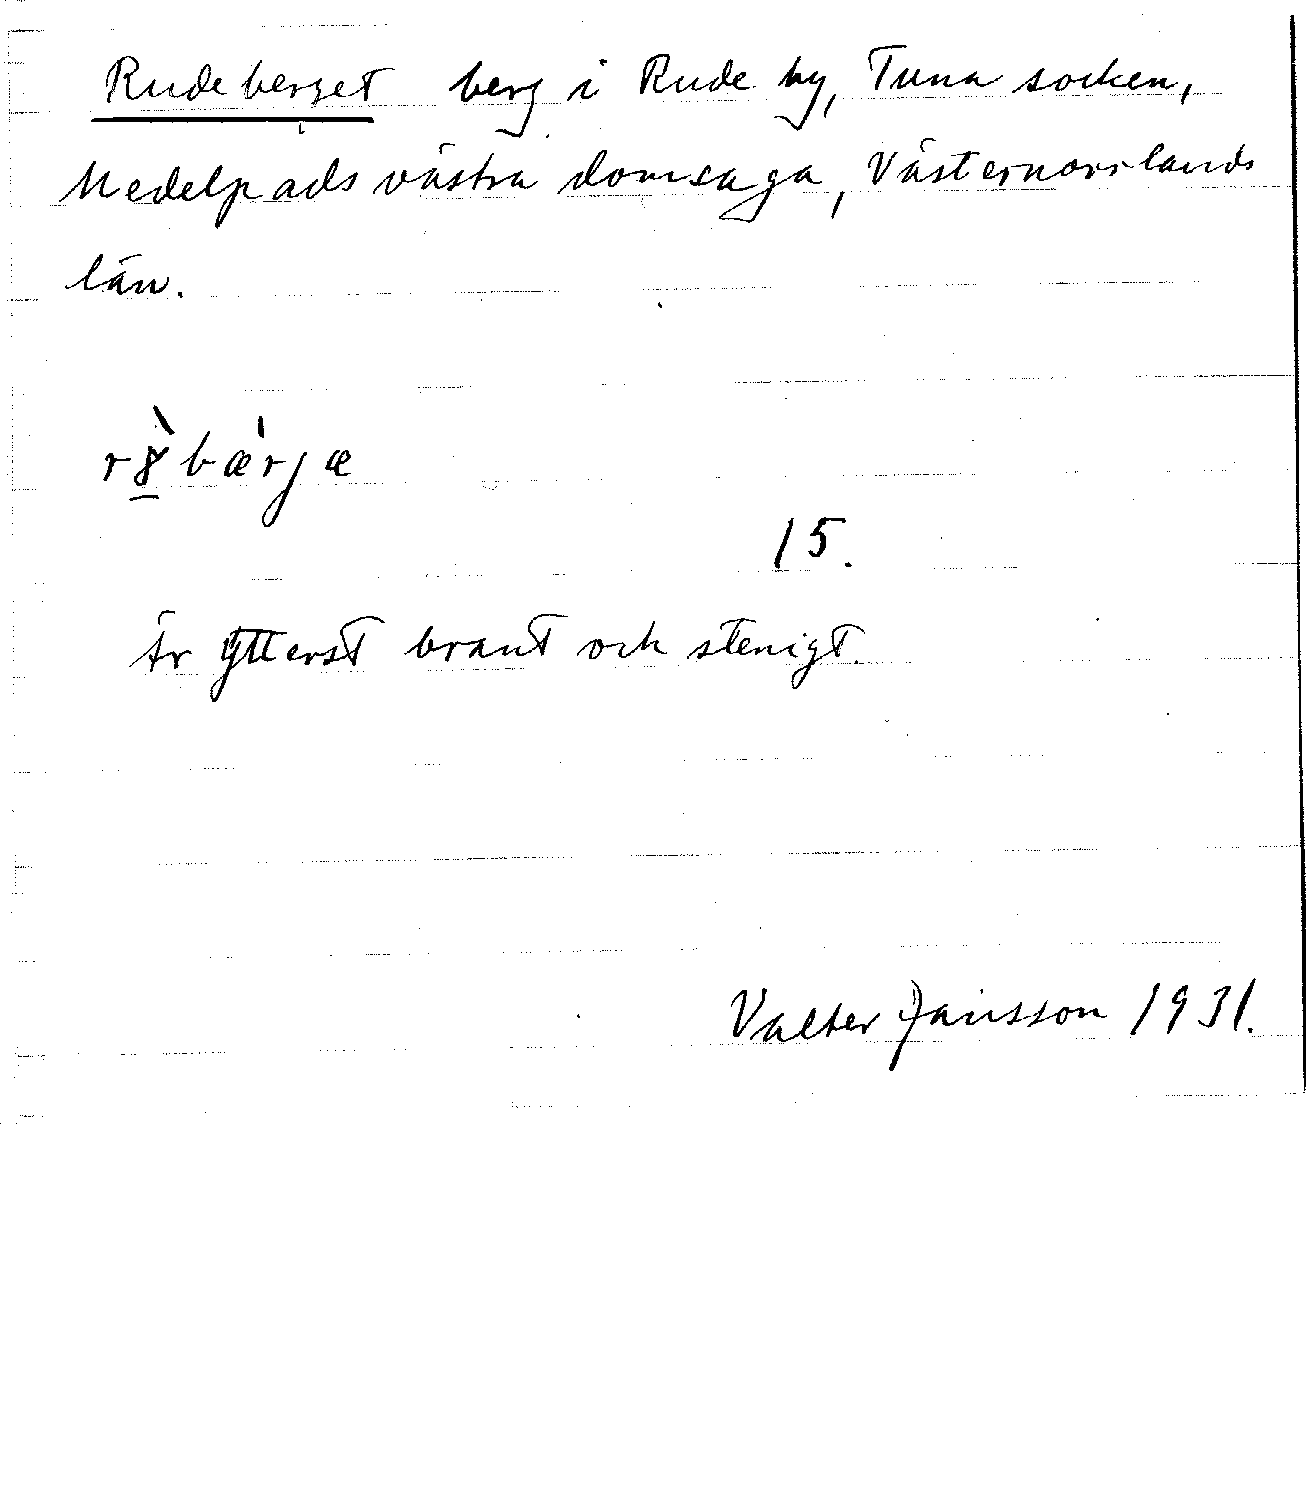 Rudeberget berg i Rude by, Tuna socken,
Medelpads västra domsaga, Västernorrlands
län.
rȣ̀bærjæ
15.
Är ytterst brant och stenigt.
Valter Jansson 1931.